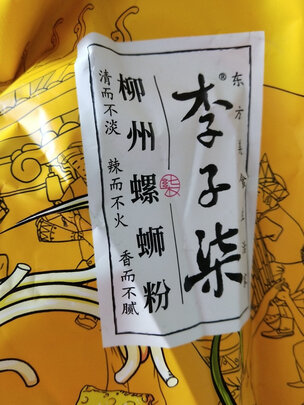 东方美食生活家
李子柒®
柳州螺蛳粉
清而不淡 辣而不火 香而不腻